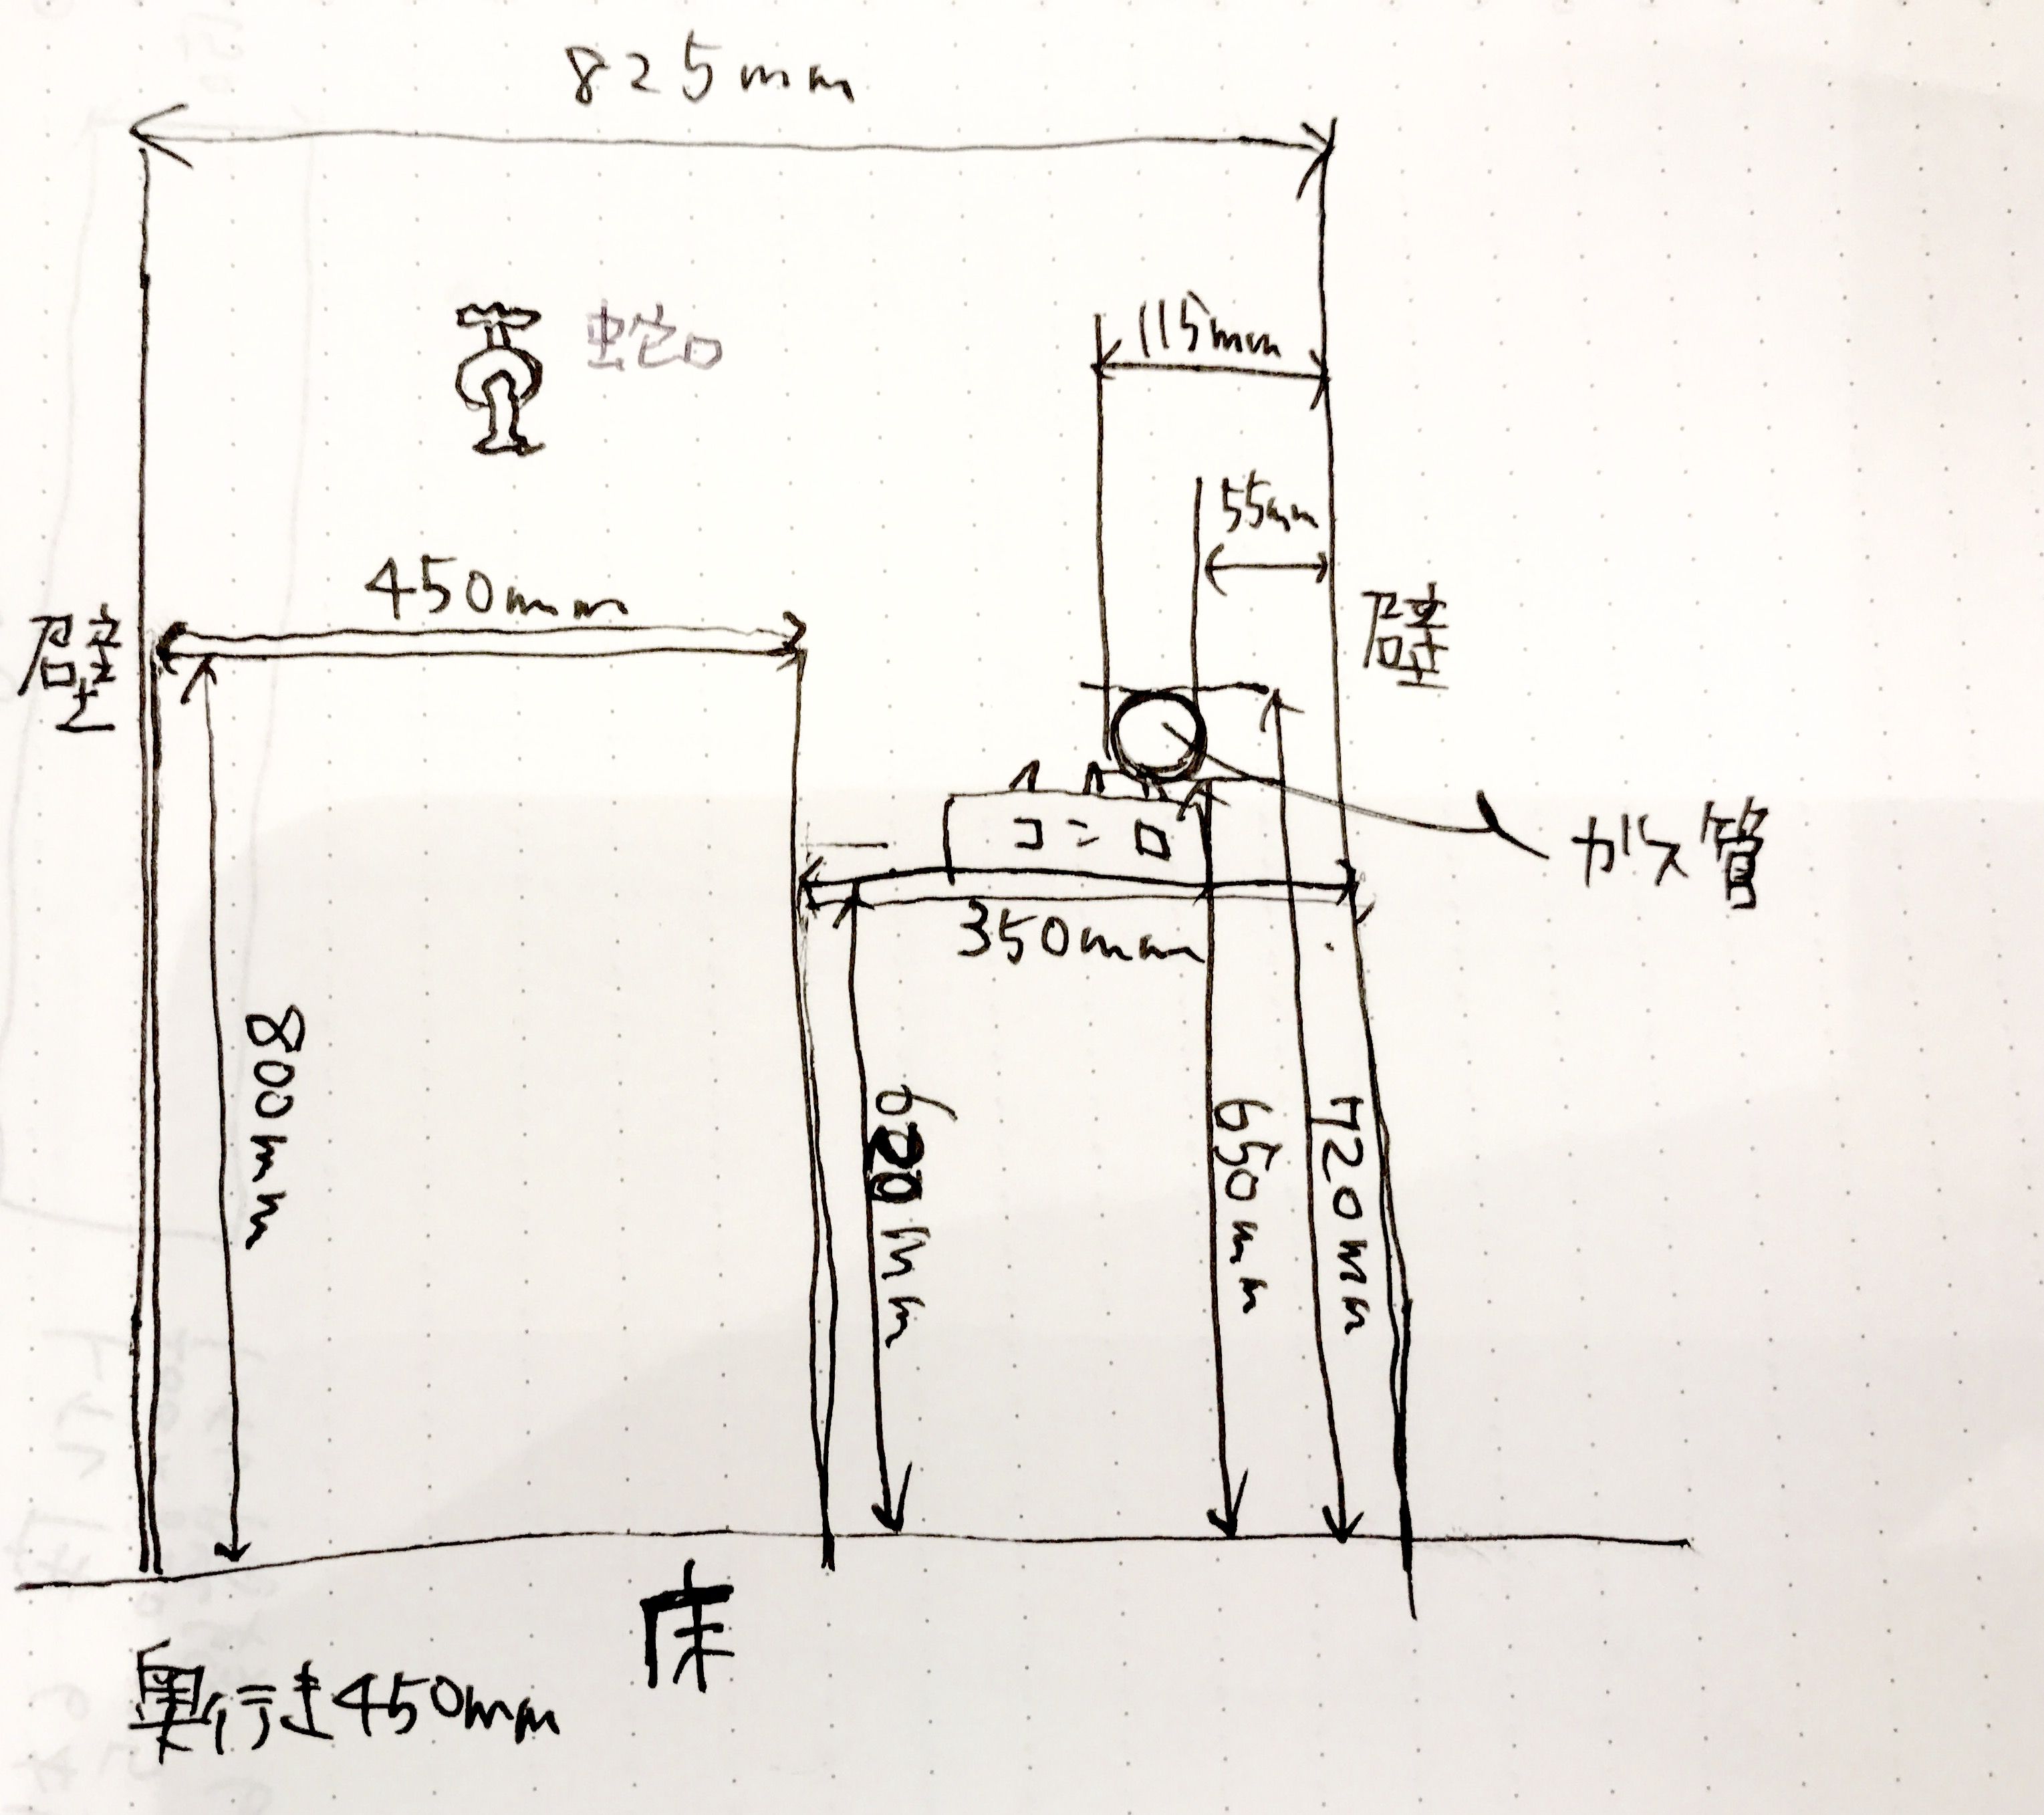 825mm
蛇口
115mm
55mm
450mm
壁
壁
コンロ
ガス管
350mm
800mm
620mm
650mm
720mm
床
奥行き450mm